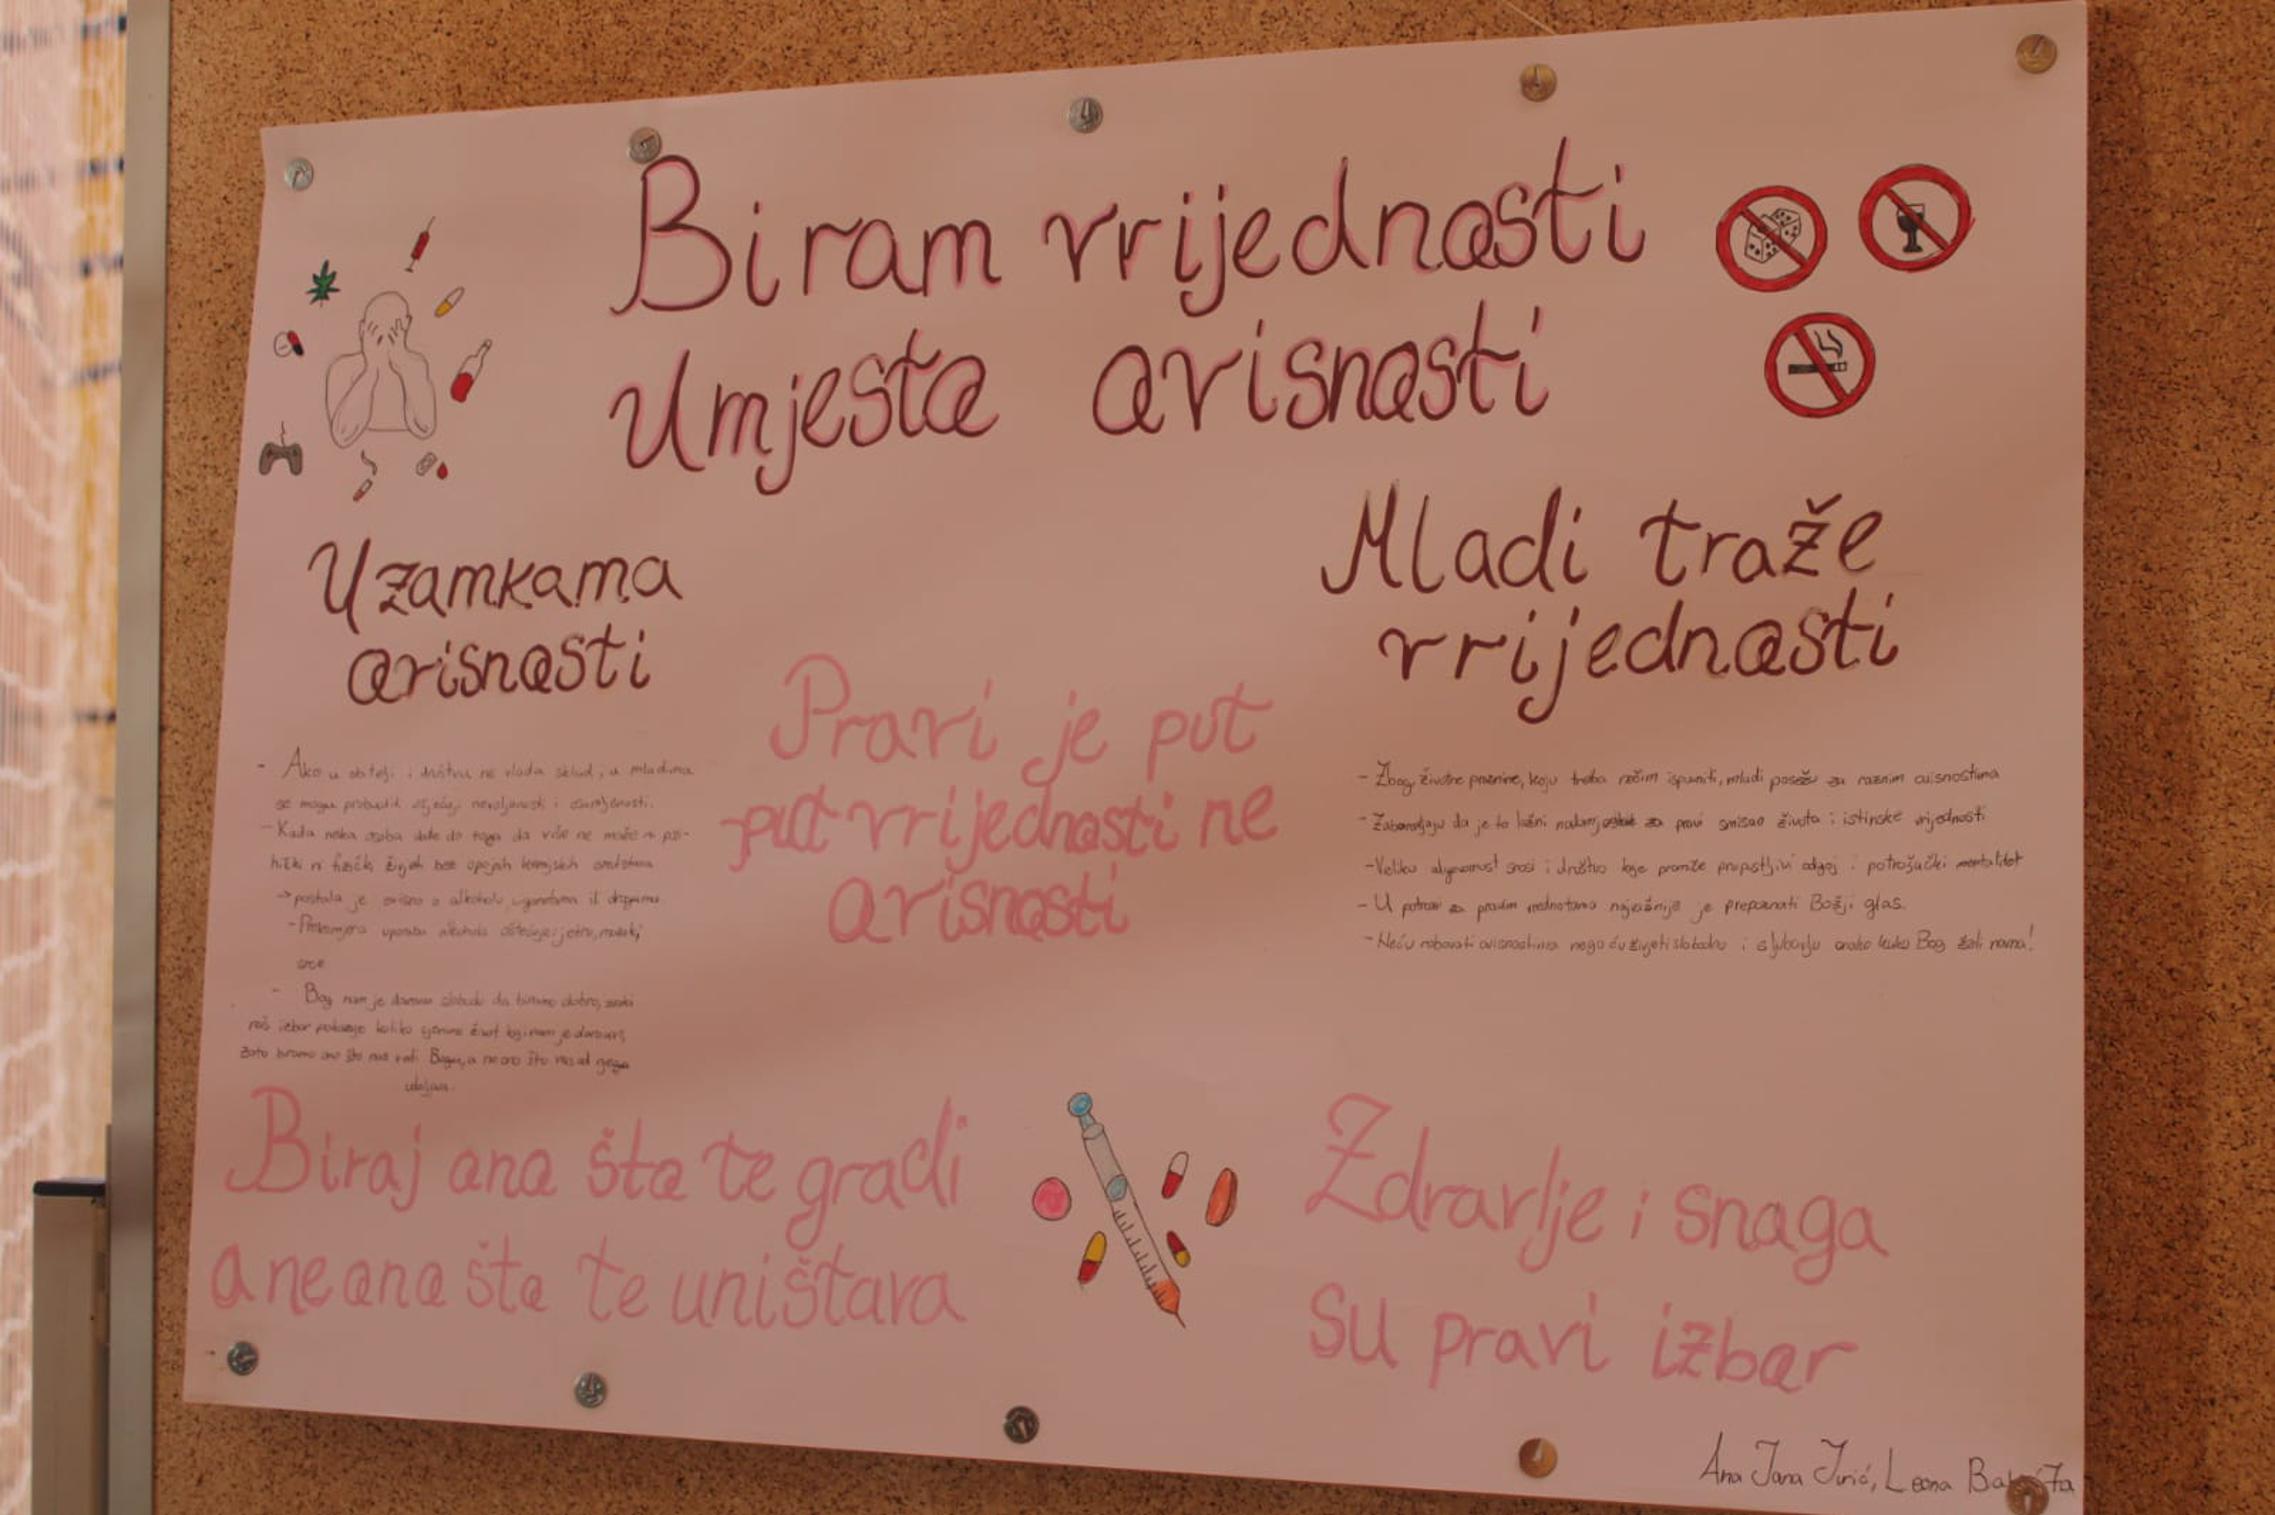 Biram vrijednosti
umjesto ovisnosti
U zamkama
ovisnosti
Mladi traže
vrijednosti
Pravi je put
put vrijednosti ne
ovisnosti
- Ako u obitelji i društvu ne vlada sklad, u mladima
se mogu probuditi osjećaj nevoljenosti i
- Kada neka osoba dođe do toga da više ne može ni psi-
hički ni fizički živjeti bez opojnih kemijskih sredstava
-> postala je ovisna o alkoholu, cigaretama ili drogama
- Prekomjerna uporaba alkohola oštećuje jetru, mozak i
srce
- Bog nam je darovao slobodu da biramo dobro, svaki
naš izbor pokazuje koliko cijenimo život koji nam je darovan,
zato biramo ono što nas vodi Bogu, a ne ono što nas od njega
udaljava.
- Zbog životne praznine, koju treba nečim ispuniti, mladi posežu za raznim ovisnostima
- Zaboravljaju da je to lažni nadomjestak za pravi smisao života i istinske vrijednosti
- Veliku odgovornost snosi i društvo koje promiče propustljivi odgoj i potrošački mentalitet
- U potrazi za pravim vrednotama najvažnije je prepoznati Božji glas.
- Neću robovati ovisnostima nego ću živjeti slobodno i s ljubavlju onako kako Bog želi nama!
Biraj ono što te gradi
a ne ono što te uništava
Zdravlje i snaga
su pravi izbor
Ana Jana Jurić, Leona 7a